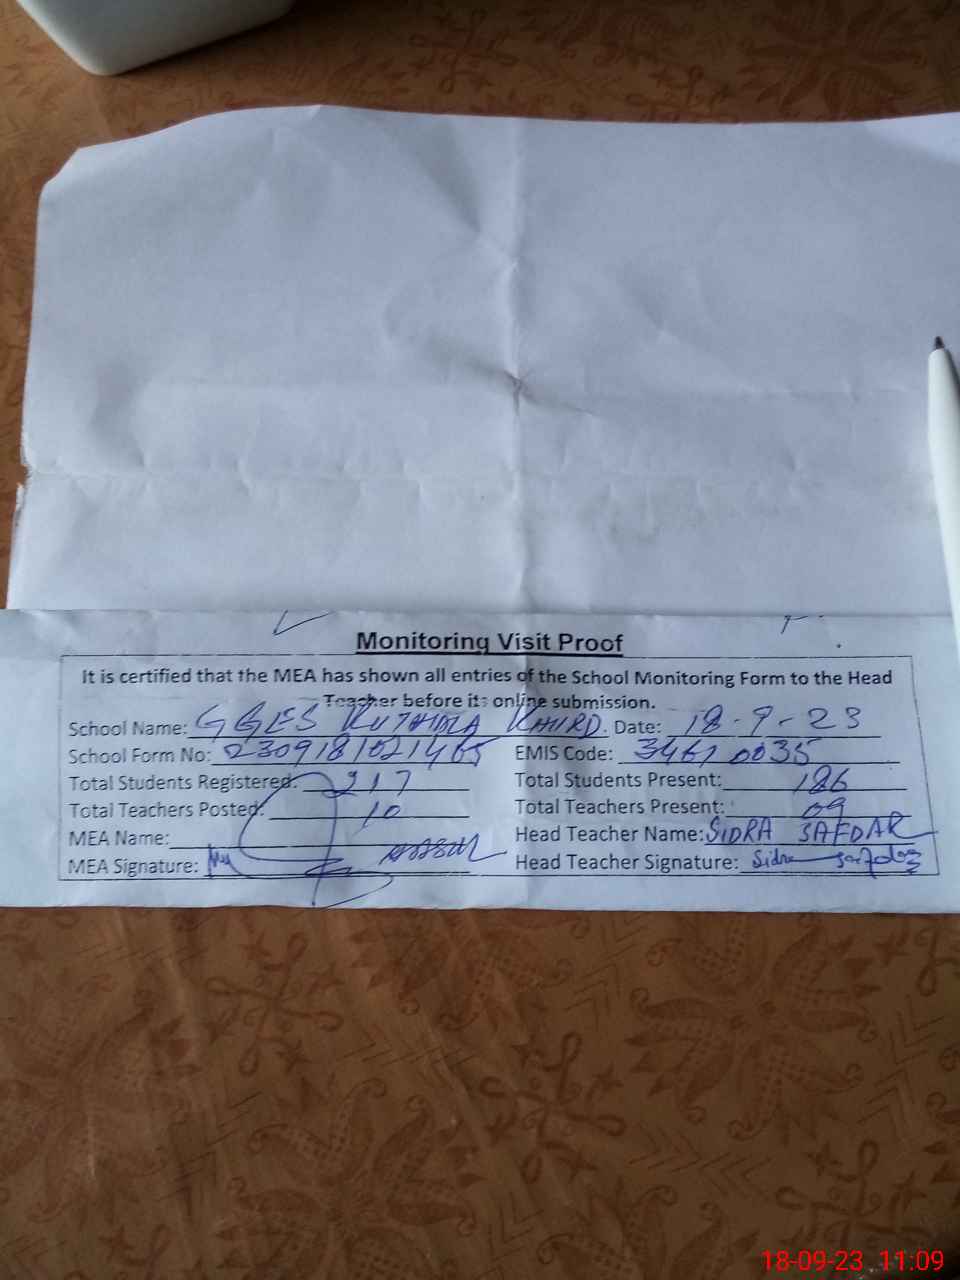 Monitoring Visit Proof
It is certified that the MEA has shown all entries of the School Monitoring Form to the Head
Teacher before its online submission.
School Name: GGES KUTHIALA KHURD. Date: 18-9-23
School Form No: 2309181021465 EMIS Code: 34610035
Total Students Registered: 217 Total Students Present: 186
Total Teachers Posted: 10 Total Teachers Present: 09
MEA Name: Head Teacher Name: SIDRA SAFDAR
MEA Signature: Head Teacher Signature: Sidra safdar
18-09-23 11:09